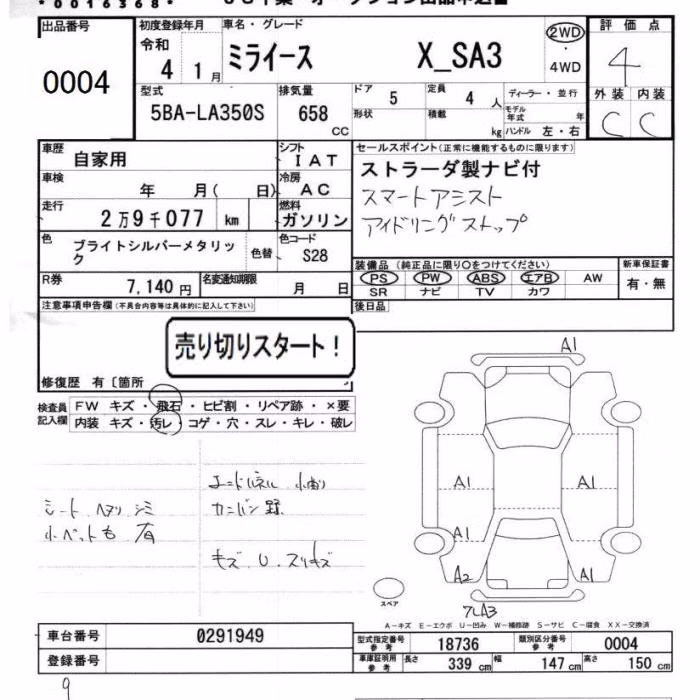 *0016368*
出品番号 初度登録年月 車名・グレード 評価点
0004 令和 4 1月 ミライース X_SA3 2WD・4WD 4
型式 5BA-LA350S 排気量 658 CC ドア 5 定員 4 人 ディーラー・並行 外装 内装
形状 積載 kg モデル年式 年 ハンドル 左・右 C C
車歴 自家用 シフト IAT セールスポイント(正常に機能するものに限ります)
車検 年 月( 日) 冷房 AC ストラーダ製ナビ付
走行 2万9千077 km 燃料 ガソリン スマートアシスト
アイドリングストップ
色 ブライトシルバーメタリック 色替 色コード S28
装備品(純正品に限り〇をつけてください) 新車保証書
R券 7,140円 名変通知期限 月 日 PS PW ABS エアB AW 有・無
SR ナビ TV カワ
注意事項申告欄(不具合内容等は具体的に記入して下さい) 後日品
売り切りスタート!
修復歴 有〔箇所
検査員記入欄 FW キズ・飛石・ヒビ割・リペア跡・×要
内装 キズ・汚レ・コゲ・穴・スレ・キレ・破レ
シート ヘタリ シミ
小ペットも 有
キズ.U.スリキズ
A1
A1 A1
A1
A2 A1
スペア
A3
A-キズ E-エクボ U-凹み W-補修跡 S-サビ C-腐食 XX-交換済
車台番号 0291949 型式指定番号 参考 18736 類別区分番号 参考 0004
登録番号 車庫証明用 参考 長さ 339 cm 幅 147 cm 高さ 150 cm
9